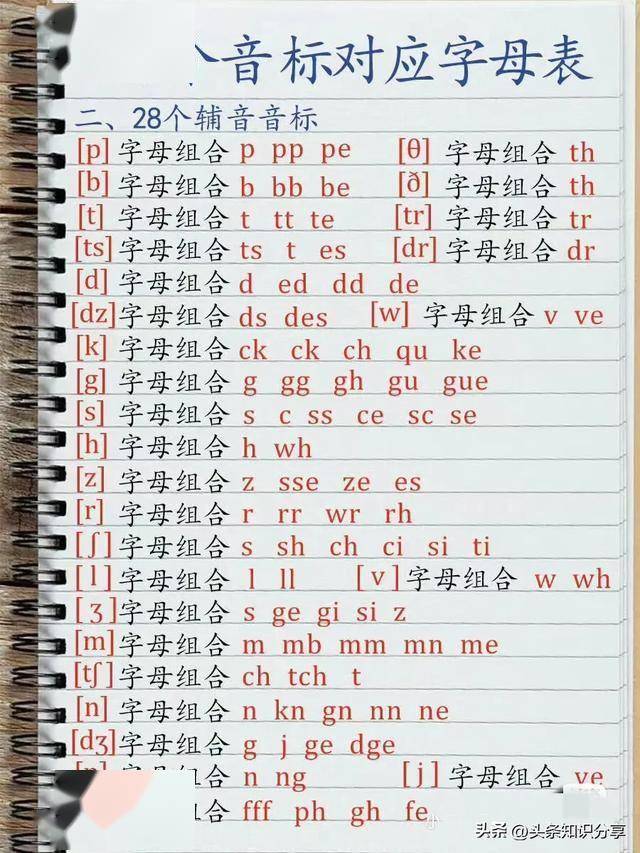 音标对应字母表
二、28个辅音音标
[p] 字母组合 p pp pe [θ] 字母组合 th
[b] 字母组合 b bb be [ð] 字母组合 th
[t] 字母组合 t tt te [tr] 字母组合 tr
[ts] 字母组合 ts t es [dr] 字母组合 dr
[d] 字母组合 d ed dd de
[dz] 字母组合 ds des [w] 字母组合 v ve
[k] 字母组合 ck ck ch qu ke
[g] 字母组合 g gg gh gu gue
[s] 字母组合 s c ss ce sc se
[h] 字母组合 h wh
[z] 字母组合 z sse ze es
[r] 字母组合 r rr wr rh
[ʃ] 字母组合 s sh ch ci si ti
[l] 字母组合 l ll [v] 字母组合 w wh
[ʒ] 字母组合 s ge gi si z
[m] 字母组合 m mb mm mn me
[tʃ] 字母组合 ch tch t
[n] 字母组合 n kn gn nn ne
[dʒ] 字母组合 g j ge dge
字母组合 n ng [j] 字母组合 ye
组合 fff ph gh fe
头条 @头条知识分享